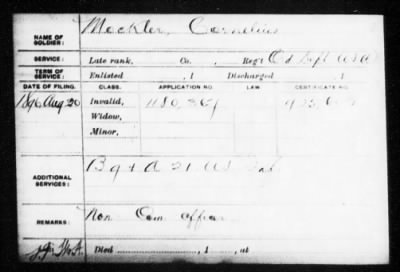 NAME OF SOLDIER: Mockler, Cornelius
SERVICE: Late rank, Co. Reg't Ord Dept USA
TERM OF SERVICE: Enlisted , 1 Discharged , 1
DATE OF FILING. CLASS. APPLICATION NO. LAW. CERTIFICATE NO.
1896 Aug 20 Invalid, 1180,
Widow,
Minor,
ADDITIONAL SERVICES: B g + A 21 US Inf
REMARKS: Non Com officer
Died , 1 , at